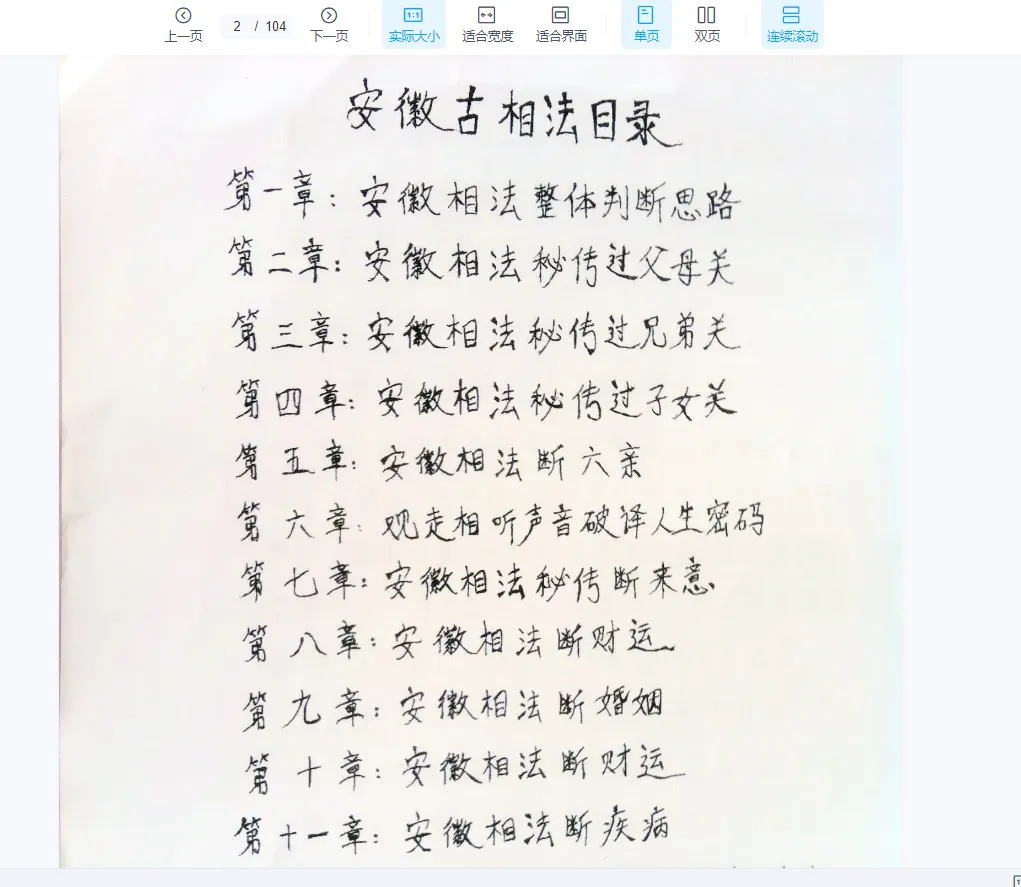 上一页 2 / 104 下一页 1:1 实际大小 适合宽度 适合界面 单页 双页 连续滚动
安徽古相法目录
第一章：安徽相法整体判断思路
第二章：安徽相法秘传过父母关
第三章：安徽相法秘传过兄弟关
第四章：安徽相法秘传过子女关
第五章：安徽相法断六亲
第六章：观走相听声音破译人生密码
第七章：安徽相法秘传断来意
第八章：安徽相法断财运
第九章：安徽相法断婚姻
第十章：安徽相法断财运
第十一章：安徽相法断疾病